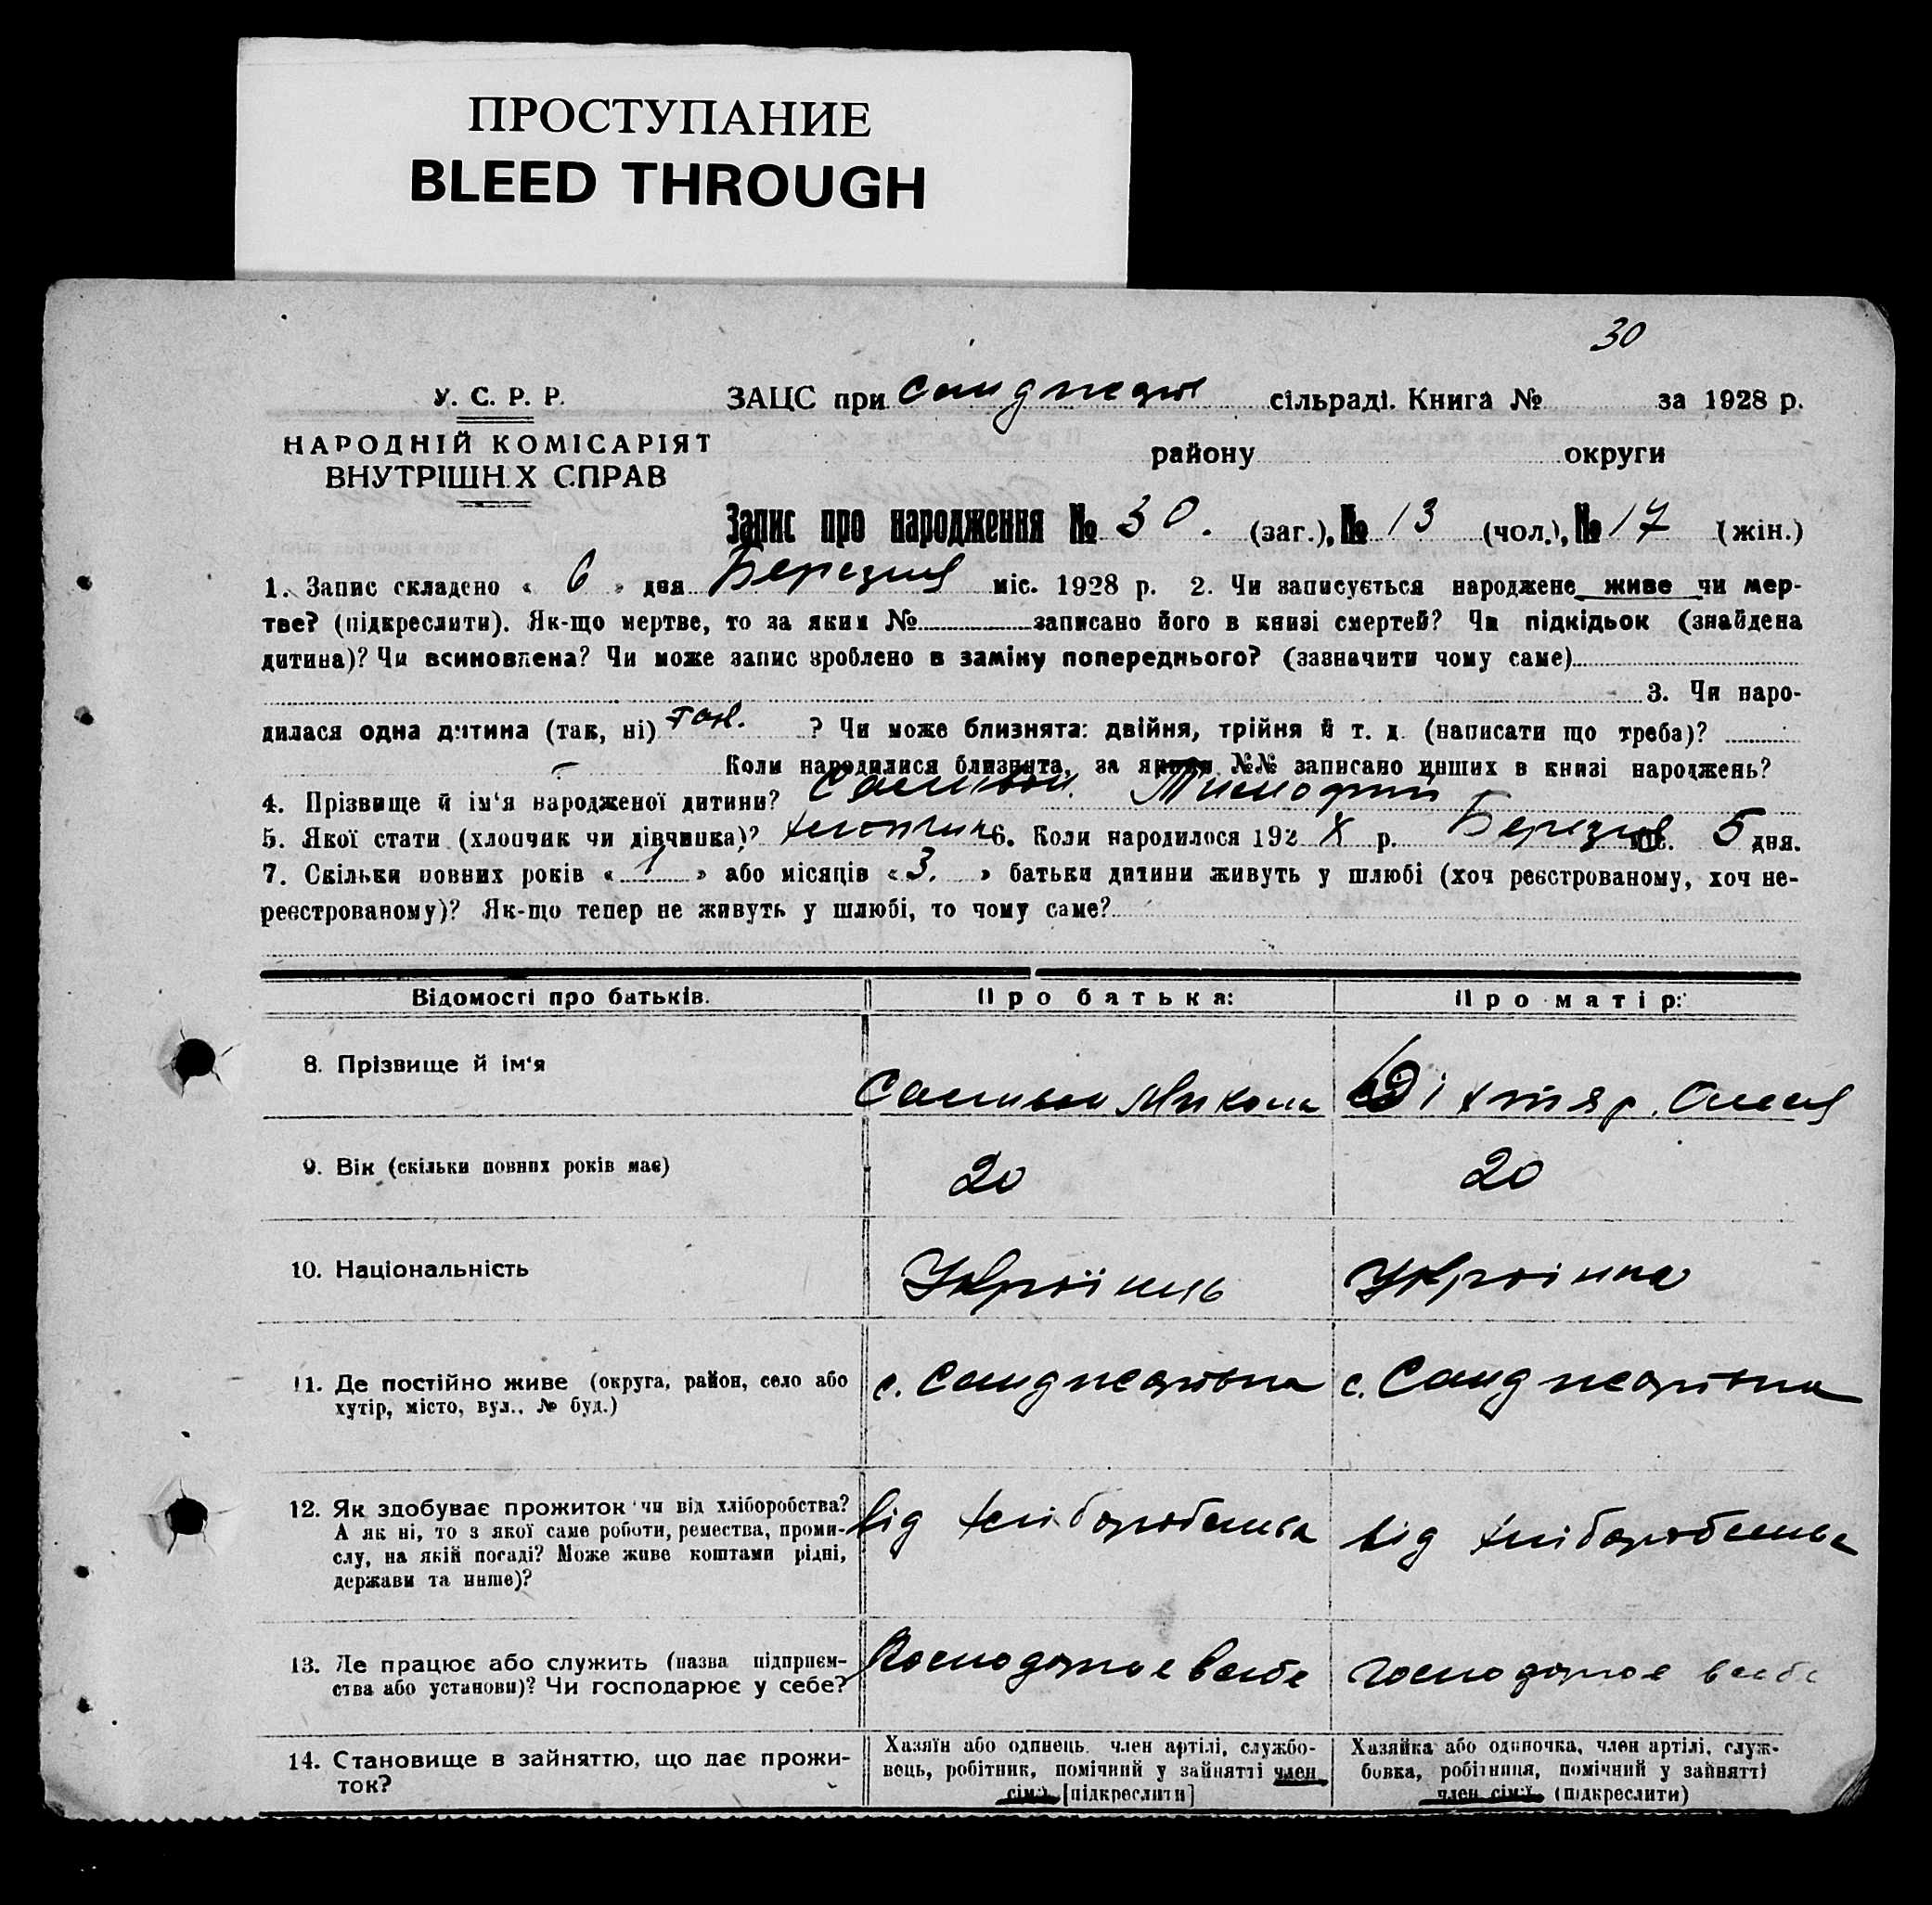 ПРОСТУПАНИЕ
BLEED THROUGH
30
У. С. Р. Р.
НАРОДНІЙ КОМІСАРІЯТ
ВНУТРІШН.Х СПРАВ
ЗАЦС при сільраді. Книга № за 1928 р.
району округи
Запис про народження № 30. (заг.), № 13 (чол.), № 17 (жін.)
1. Запис складено « 6 » дня Березня міс. 1928 р. 2. Чи записується народжене живе чи мер-
тве? (підкреслити). Як-що мертве, то за яким № записано його в книзі смертей? Чи підкідьок (знайдена
дитина)? Чи всиновлена? Чи може запис зроблено в заміну попереднього? (зазначити чому саме)
3. Чи наро-
дилася одна дитина (так, ні) так. ? Чи може близнята: двійня, трійня й т. д. (написати що треба)?
Коли народилися близнята, за якими №№ записано инших в книзі народжень?
4. Прізвище й ім'я народженої дитини? Тимофій
5. Якої стати (хлопчик чи дівчинка)? хлопчик 6. Коли народилося 1928 р. Березня міс. 5 дня.
7. Скільки повних років « 1 » або місяців « 3. » батьки дитини живуть у шлюбі (хоч реєстрованому, хоч не-
реєстрованому)? Як-що тепер не живуть у шлюбі, то чому саме?
Відомості про батьків. Про батька: Про матір:
8. Прізвище й ім'я Микола Дігтяр.
9. Вік (скільки повних років має) 20 20
10. Національність Україінць Украінка
11. Де постійно живе (округа, район, село або
хутір, місто, вул., № буд.) с. с.
12. Як здобуває прожиток чи від хліборобства?
А як ні, то з якої саме роботи, ремества, проми-
слу, на якій посаді? Може живе коштами рідні,
держави та инше)? від хліборобства від хліборобства
13. Де працює або служить (назва підприєм-
ства або установи)? Чи господарює у себе? Господарює в себе господарює в себе
14. Становище в зайняттю, що дає прожи-
ток?
Хазяїн або одинець, член артілі, службо-
вець, робітник, помічний у зайнятті член
сім'ї. [підкреслити]
Хазяйка або одиночка, член артілі, служ-
бовка, робітниця, помічний у зайнятті
член сім'ї. (підкреслити)